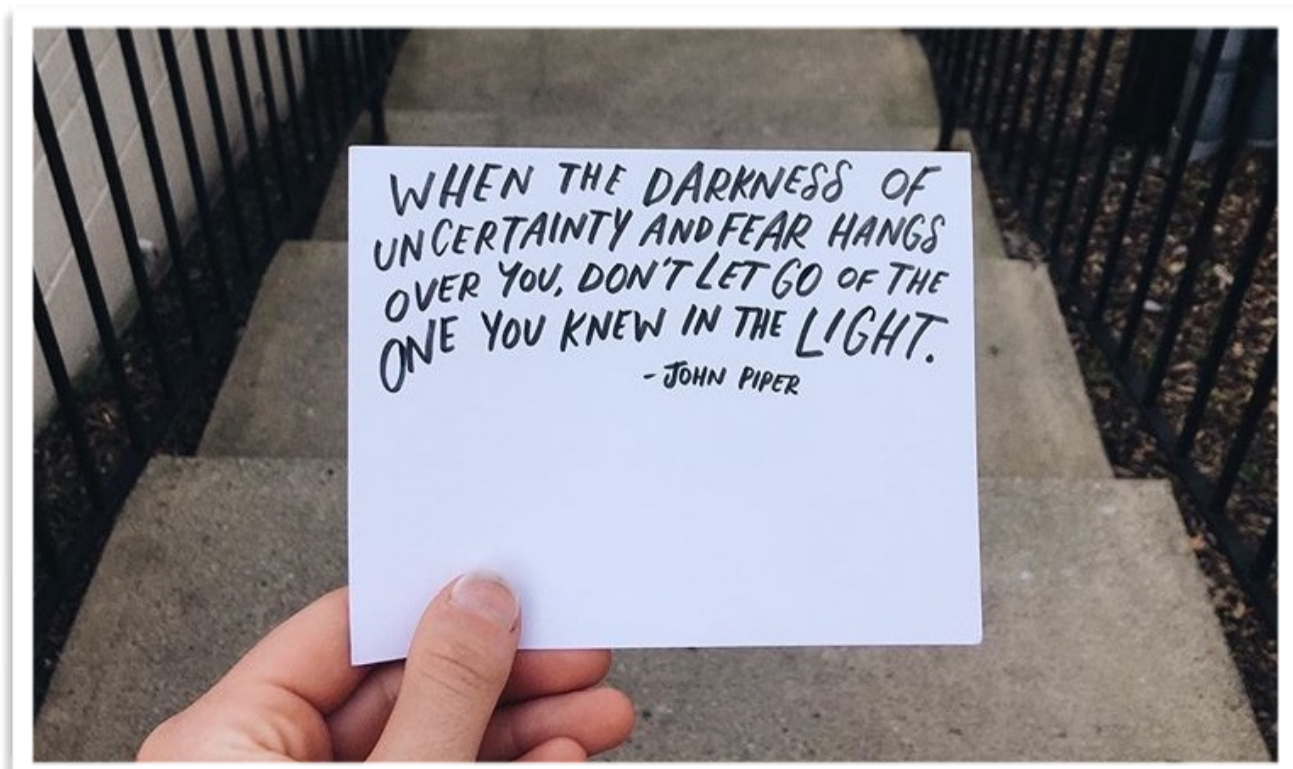 WHEN THE DARKNESS OF
UNCERTAINTY AND FEAR HANGS
OVER YOU, DON'T LET GO OF THE
ONE YOU KNEW IN THE LIGHT.
- JOHN PIPER